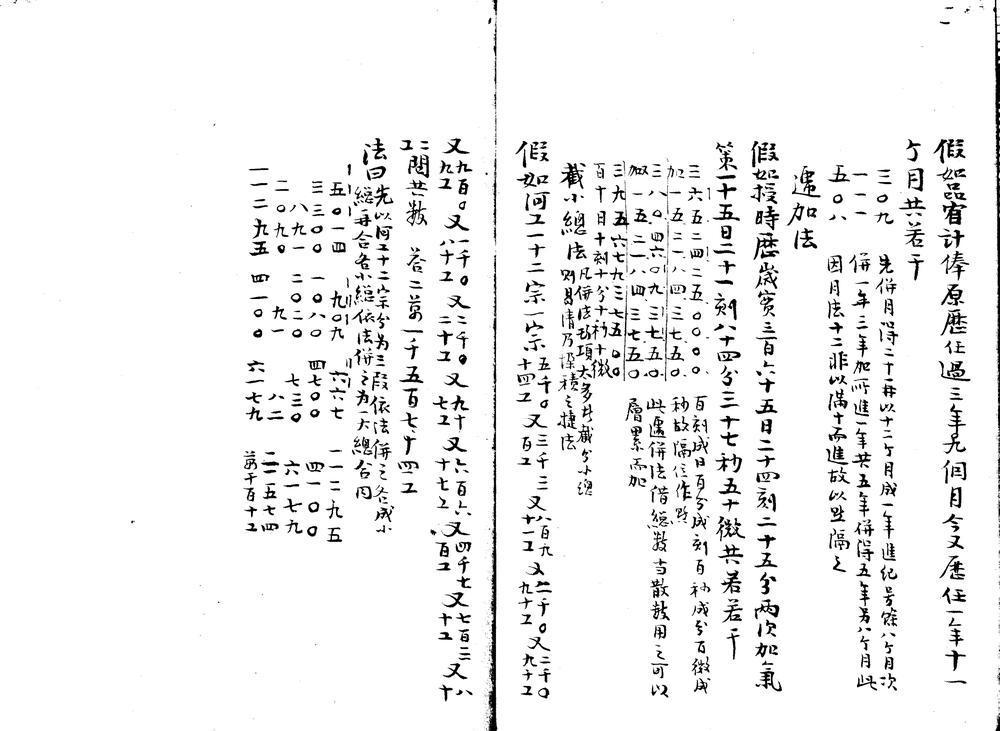 假如品官計俸原歷任過三年九個月今又歷任一年十一
个月共若干
三〇九
一一一
五〇八
先併月得二十再以十二个月成一年進紀号餘八个月次
併一年三年加所進一年共五年併得五年另八个月此
因月法十二非以滿十而進故以點隔之
遞加法
假如授時歷歲實三百六十五日二十四刻二十五分兩次加氣
策一十五日二十一刻八十四分三十七秒五十微共若干
三六五二四二五〇〇〇〇
加一五二一八四三七五〇
三八〇四六〇九三七五〇
加一五二一八四三七五〇
三九五六七九三七五〇〇
百刻成日百分成刻百秒成分百微成
秒故隔位作點
此遞併法借總數当散數用之可以
層累而加
截小總法
凡併法款項太多共截分小總
則易清乃染積之捷法
百十日十刻十分十秒十微
假如何工一十二宗一宗五千〇十四工 又三千三百工 又八百九十一工 又二千〇九十工 又二千〇九十工
又九百〇九工 又一千〇八十工 又二千〇二十工 又九十七工 又六百六十七工 又四千七百工 又七百三十工 又八十
二工 問共數 答二萬一千五百七十四工
法曰
先以何工十二宗分为三段依法併之各成小
總再合各小總依法併之为一大總合问
五〇一四 九〇九 六六七 一一二九五
三三〇〇 一〇八〇 四七〇〇 四一〇〇
八九一 二〇二〇 七三〇 六一七九
二〇九〇 九一 八二 二一五七四
一一二九五 四一〇〇 六一七九 萬千百十工